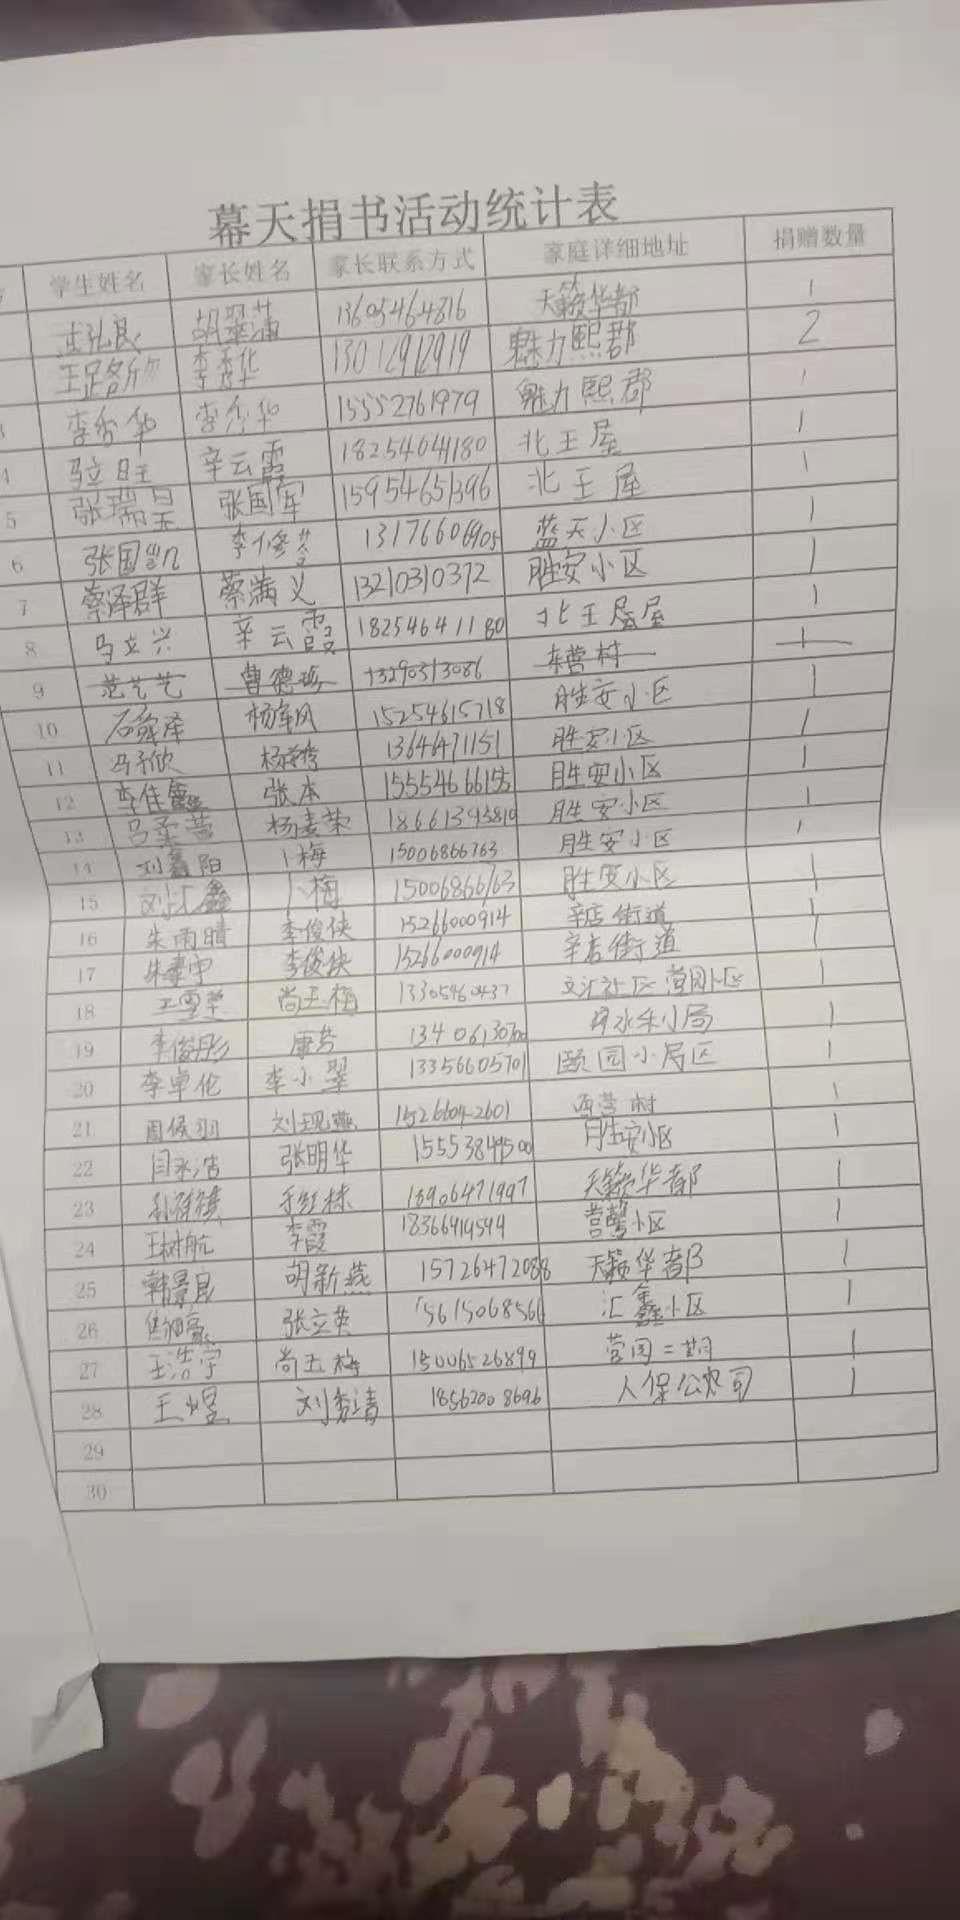 幕天捐书活动统计表
学生姓名 家长姓名 家长联系方式 家庭详细地址 捐赠数量
胡翠蒲 13605464816 天籁华都 1
13012912919 魅力熙郡 2
李秀华 15552761979 魅力熙郡 1
4 辛云霞 18254641180 北王屋 1
5 张瑞昌 张国军 15954651396 北王屋 1
6 张国凯 13176606905 蓝天小区 1
7 蔡泽群 蔡满义 13210310372 胜安小区 1
8 马立兴 辛云霞 18254641180 北王屋 1
9 范艺艺 曹德珍 13290313086 村 1
10 石舜泽 杨军风 15254615718 胜安小区 1
11 马欣 13646471151 胜安小区 1
12 李佳鑫 张本 胜安小区 1
13 吕柔萱 杨麦荣 胜安小区 1
14 刘鑫阳 卜梅 15006866763 胜安小区 1
15 刘汇鑫 卜梅 15006866763 胜安小区 1
16 朱雨晴 李俊侠 15266000914 辛店街道 1
17 李俊侠 15266000914 辛店街道 1
18 尚玉梅 13305460437 文汇社区 营园小区 1
19 李俊彤 康芳 1
20 李卓伦 李小翠 13356605701 颐园小区 1
21 周侯羽 15266042601 西营村 1
22 闫永浩 张明华 15553849500 胜安小区 1
23 13906471997 天籁华都 1
24 王树航 李霞 18366419544 营馨小区 1
25 韩景良 胡新燕 15726472088 天籁华都 1
26 张立英 15615068566 汇鑫小区 1
27 王浩宇 尚玉梅 15006526899 营园二期 1
28 王煜 刘秀清 18562008696 人保公司 1
29
30